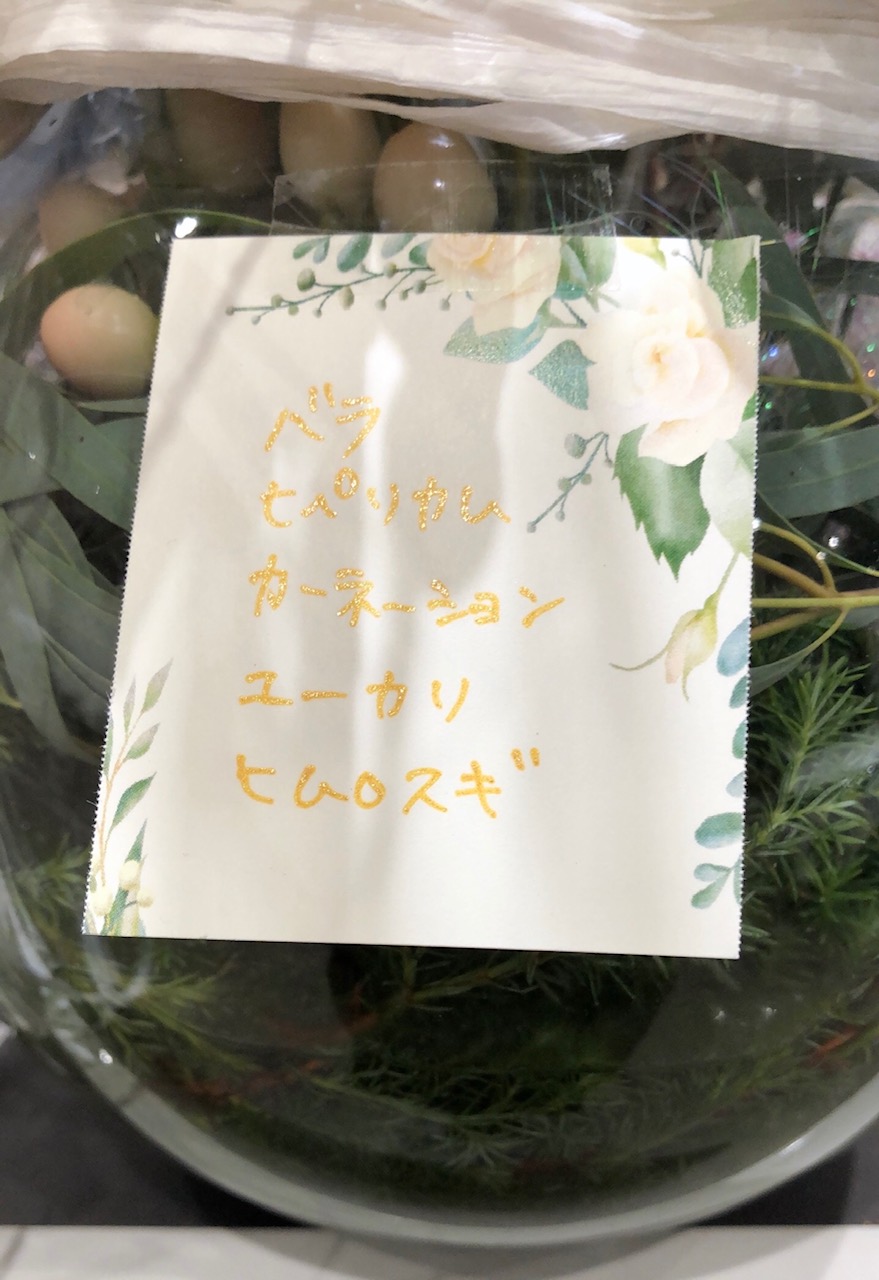 ベラ
ヒペリカム
カーネーション
ユーカリ
ヒムロスギ